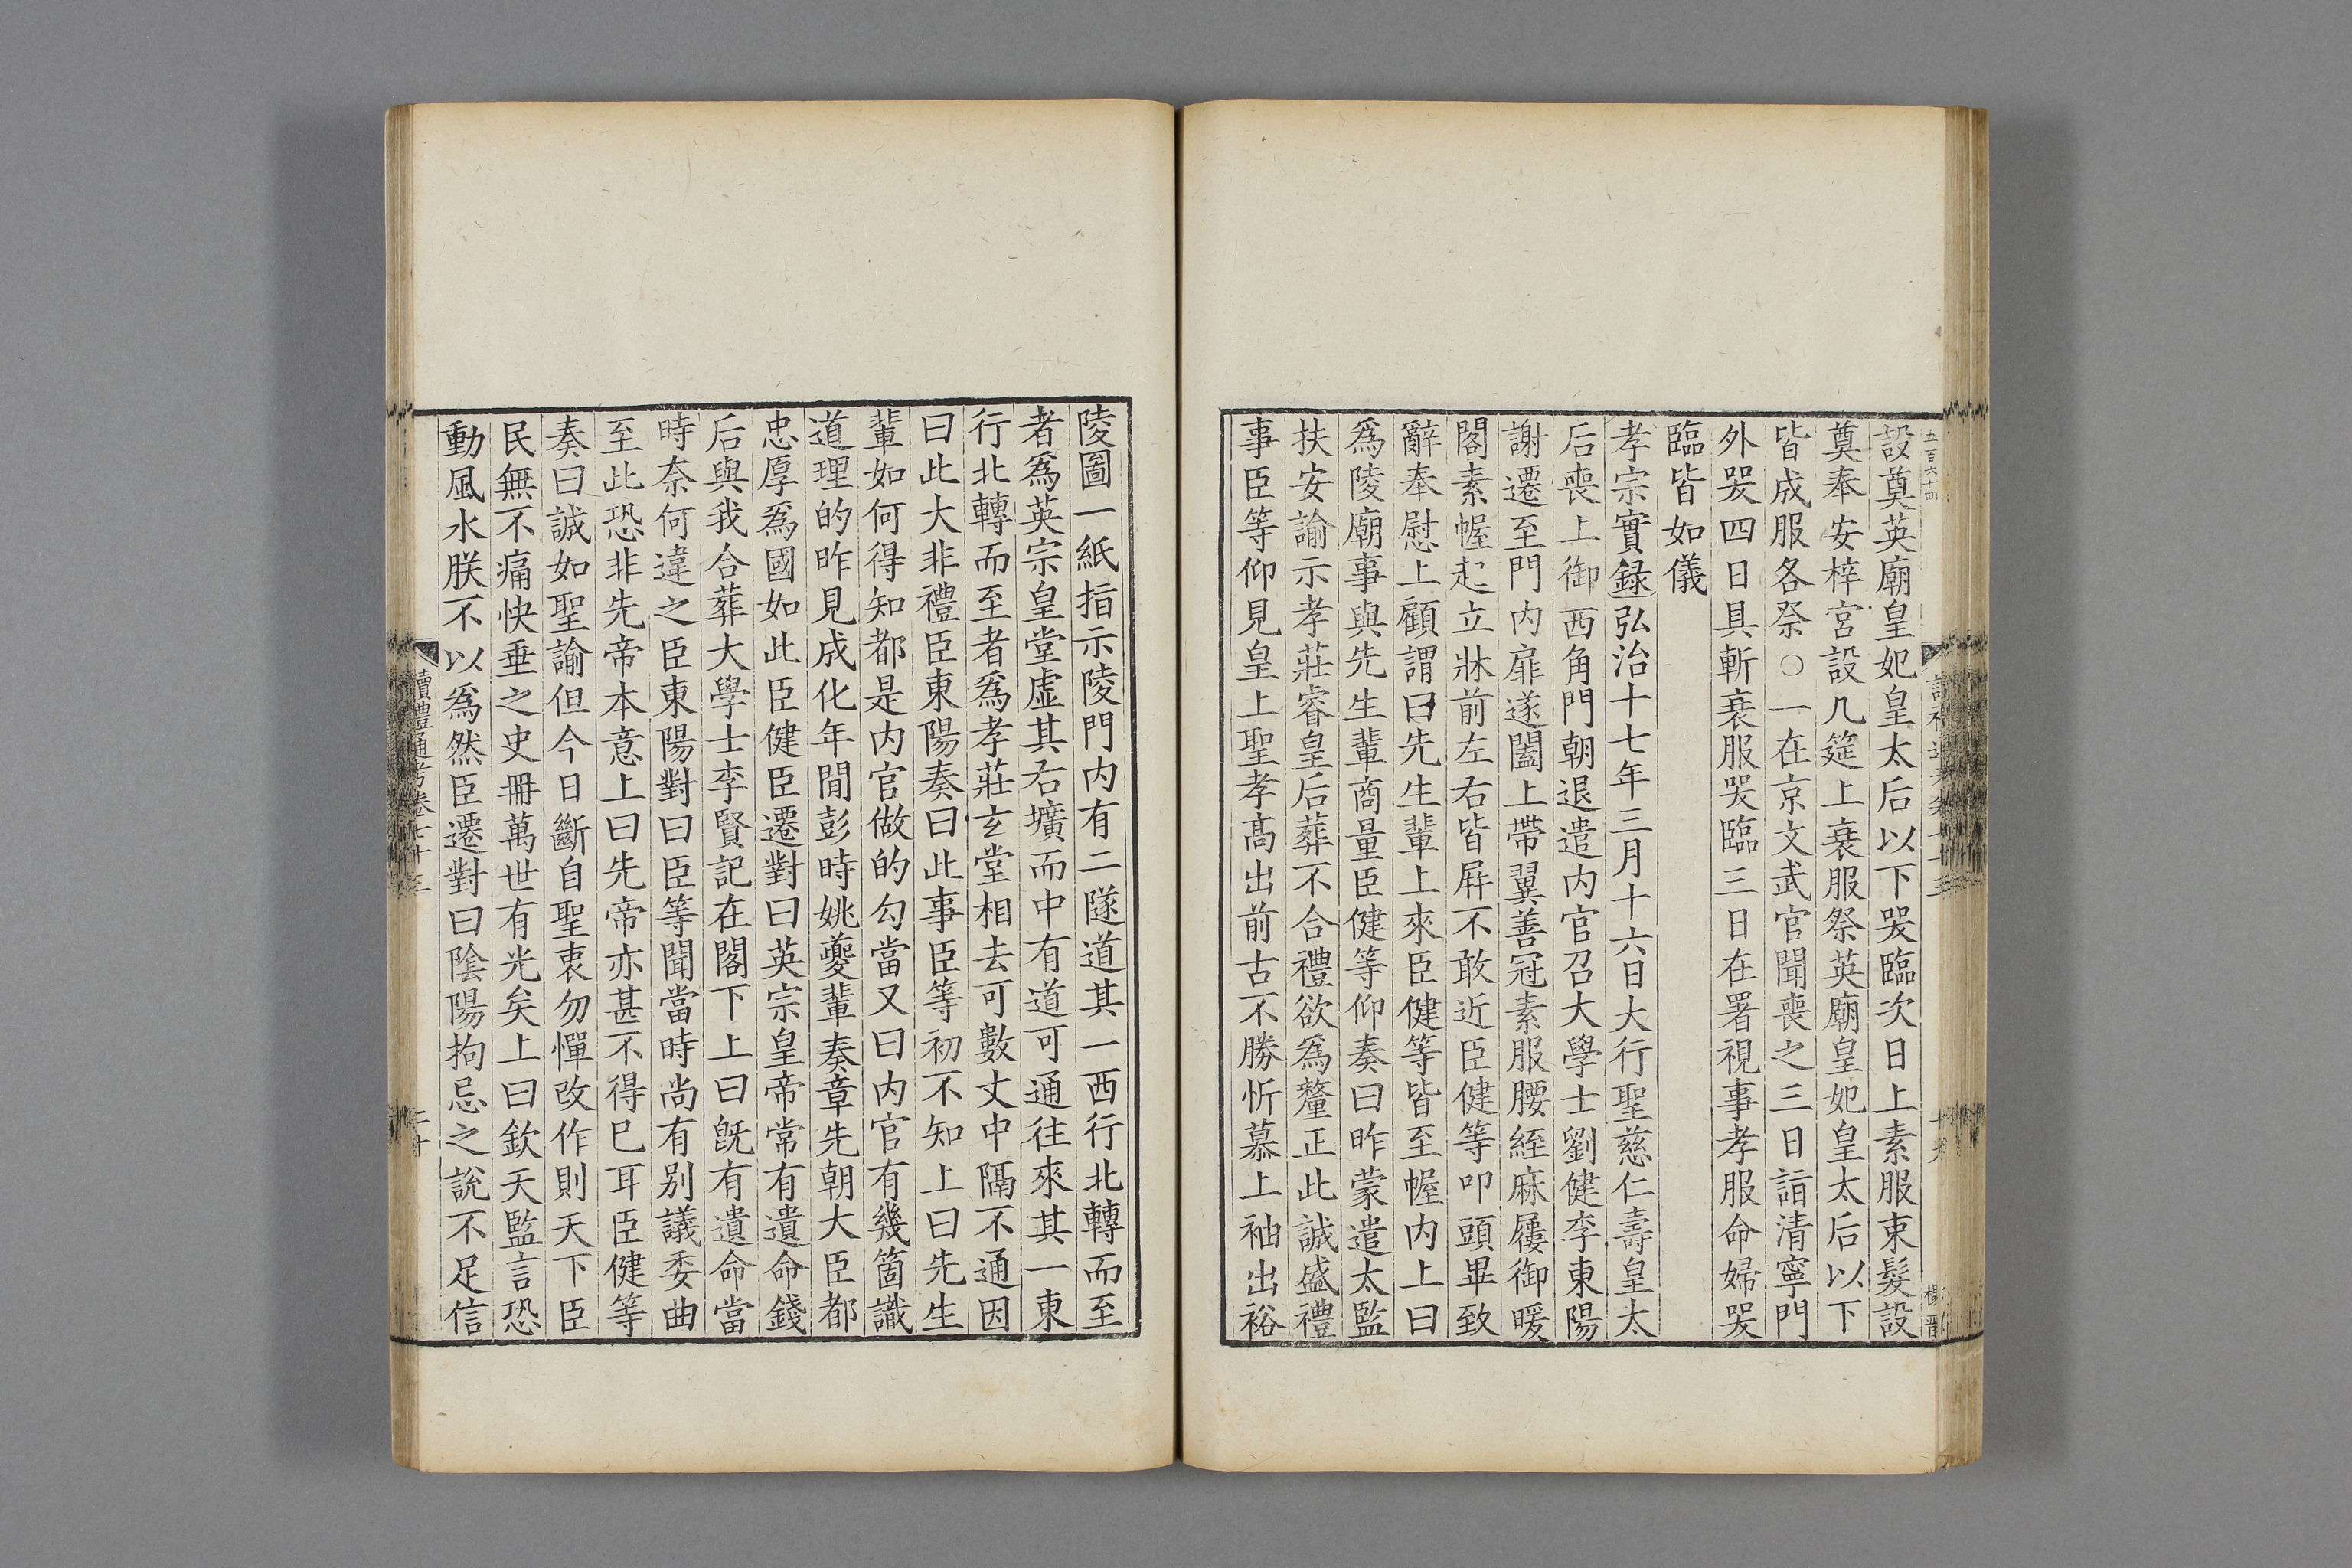 五百六十四
設奠英廟皇妃皇太后以下哭臨次日上素服束髮設
奠奉安梓宮設几筵上衰服祭英廟皇妃皇太后以下
皆成服各祭○一在京文武官聞喪之三日詣清寧門
外哭四日具斬衰服哭臨三日在署視事孝服命婦哭
臨皆如儀
孝宗實録弘治十七年三月十六日大行聖慈仁壽皇太
后喪上御西角門朝退遣内官召大學士劉健李東陽
謝遷至門内扉遂闔上帶翼善冠素服腰絰麻屨御暖
閣素幄起立牀前左右皆屛不敢近臣健等叩頭畢致
辭奉慰上顧謂曰先生輩上來臣健等皆至幄内上曰
爲陵廟事與先生輩商量臣健等仰奏曰昨蒙遣太監
扶安諭示孝莊睿皇后葬不合禮欲爲釐正此誠盛禮
事臣等仰見皇上聖孝髙出前古不勝忻慕上袖出裕
陵圖一紙指示陵門内有二隧道其一西行北轉而至
者爲英宗皇堂虛其右壙而中有道可通往來其一東
行北轉而至者爲孝莊玄堂相去可數丈中隔不通因
曰此大非禮臣東陽奏曰此事臣等初不知上曰先生
輩如何得知都是内官做的勾當又曰内官有幾箇識
道理的昨見成化年間彭時姚夔輩奏章先朝大臣都
忠厚爲國如此臣健臣遷對曰英宗皇帝常有遺命錢
后與我合葬大學士李賢記在閣下上曰旣有遺命當
時奈何違之臣東陽對曰臣等聞當時尚有别議委曲
至此恐非先帝本意上曰先帝亦甚不得已耳臣健等
奏曰誠如聖諭但今日斷自聖衷勿憚改作則天下臣
民無不痛快垂之史冊萬世有光矣上曰欽天監言恐
動風水朕不以爲然臣遷對曰陰陽拘忌之說不足信
讀禮通考卷七十三
二十